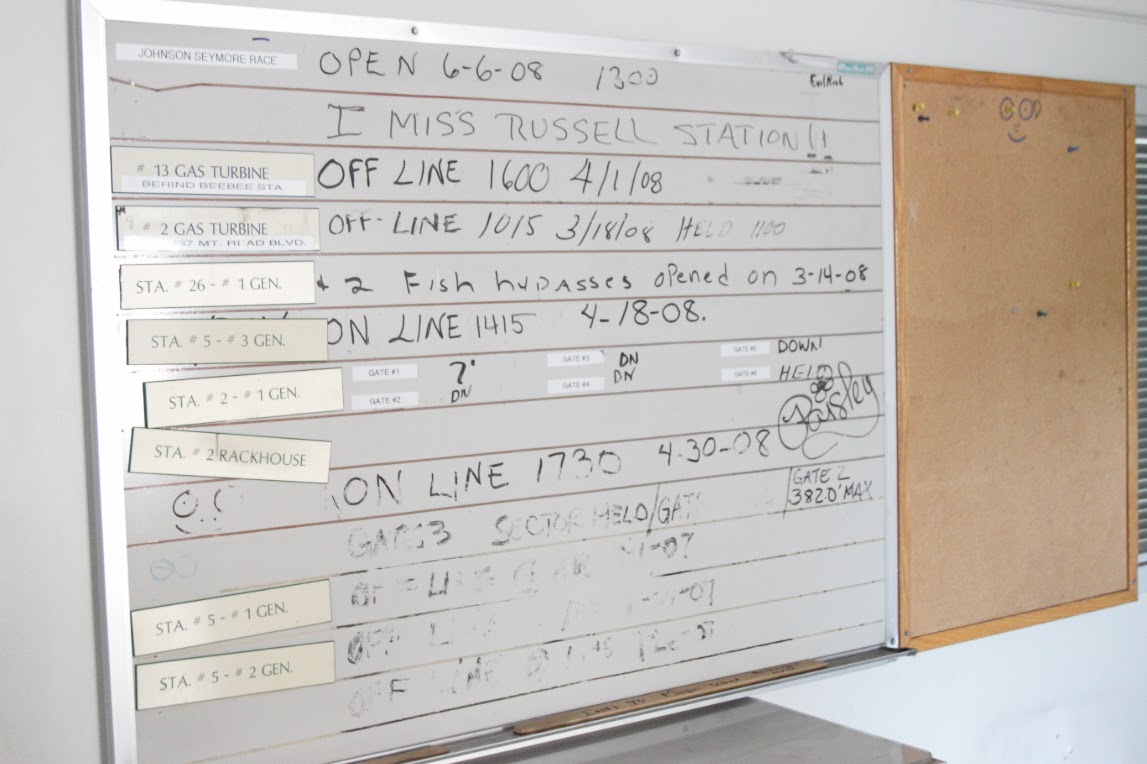 JOHNSON SEYMORE RACE OPEN 6-6-08 1300
I MISS RUSSELL STATION!!
# 13 GAS TURBINE OFF LINE 1600 4/1/08
BEHIND BEEBEE STA.
# 2 GAS TURBINE OFF-LINE 1015 3/18/08 HELD 1100
MT. READ BLVD.
STA. # 26 - # 1 GEN. + 2 Fish bypasses opened on 3-14-08
STA. # 5 - # 3 GEN. ON LINE 1415 4-18-08.
GATE #1 7' GATE #3 DN GATE #5 DOWN
STA. # 2 - # 1 GEN. GATE #2 DN GATE #4 DN GATE #6 HELD
Paisley
STA. # 2 RACKHOUSE
ON LINE 1730 4-30-08
GATE 2
382.0' MAX
SECTOR HELD/GATE
OFF LINE
STA. # 5 - # 1 GEN. OFF
STA. # 5 - # 2 GEN. OFF LINE